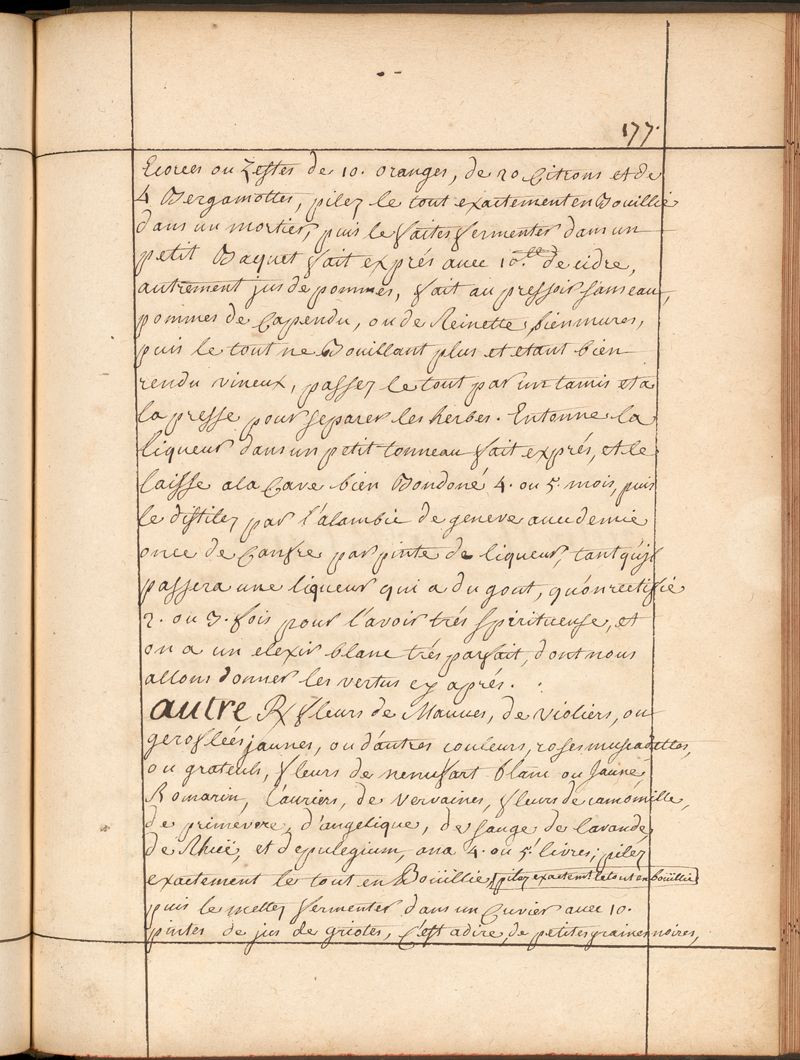 177.
Ecorces ou Zestes de 10. oranges, de 20 Citrons et de
4 Bergamottes, pilez le tout exactement en Bouillie
dans un mortier, puis le faites fermenter dans un
petit Baquet fait exprés avec 10.lt de cidre,
autrement jus de pommes, fait au pressoir sans eau,
pommes de Capendu, ou de Reinette, bien mures,
puis le tout ne Bouillant plus et etant bien
rendu vineux, passez le tout par un tamis et a
la presse pour separer les herbes. Entonne la
liqueur dans un petit tonneau fait exprés, et le
laisse a la Cave bien Bondoné 4. ou 5. mois, puis
le distilez par l'alambic de geneve avec demie
once de Canfre par pinte de liqueur, tant qu'il
passera une liqueur qui a du gout, qu'on rectifie
2. ou 3. fois pour l'avoir trés spiritueuse, et
on a un elexir blanc trés parfait, dont nous
allons donner les vertus cy aprés.
autre ℞ fleurs de Mauves, de violiers, ou
geroflées jaunes, ou d'autres couleurs, roses muscadettes,
ou grateuls, fleurs de nenufart blanc ou Jaune,
Romarin, Lauriers, de vervaines, fleurs de camomille,
de primevere, d'angelique, de sauge de lavande
de Rhuë, et de pulegium, ana 4. ou 5 livres; pilez
exactement le tout en Boüillie, pilez exactemt le tout en boüillie
puis le mettez fermenter dans un Cuvier avec 10.
pintes de jus de griotes, C'est a dire, de petites graines noires,